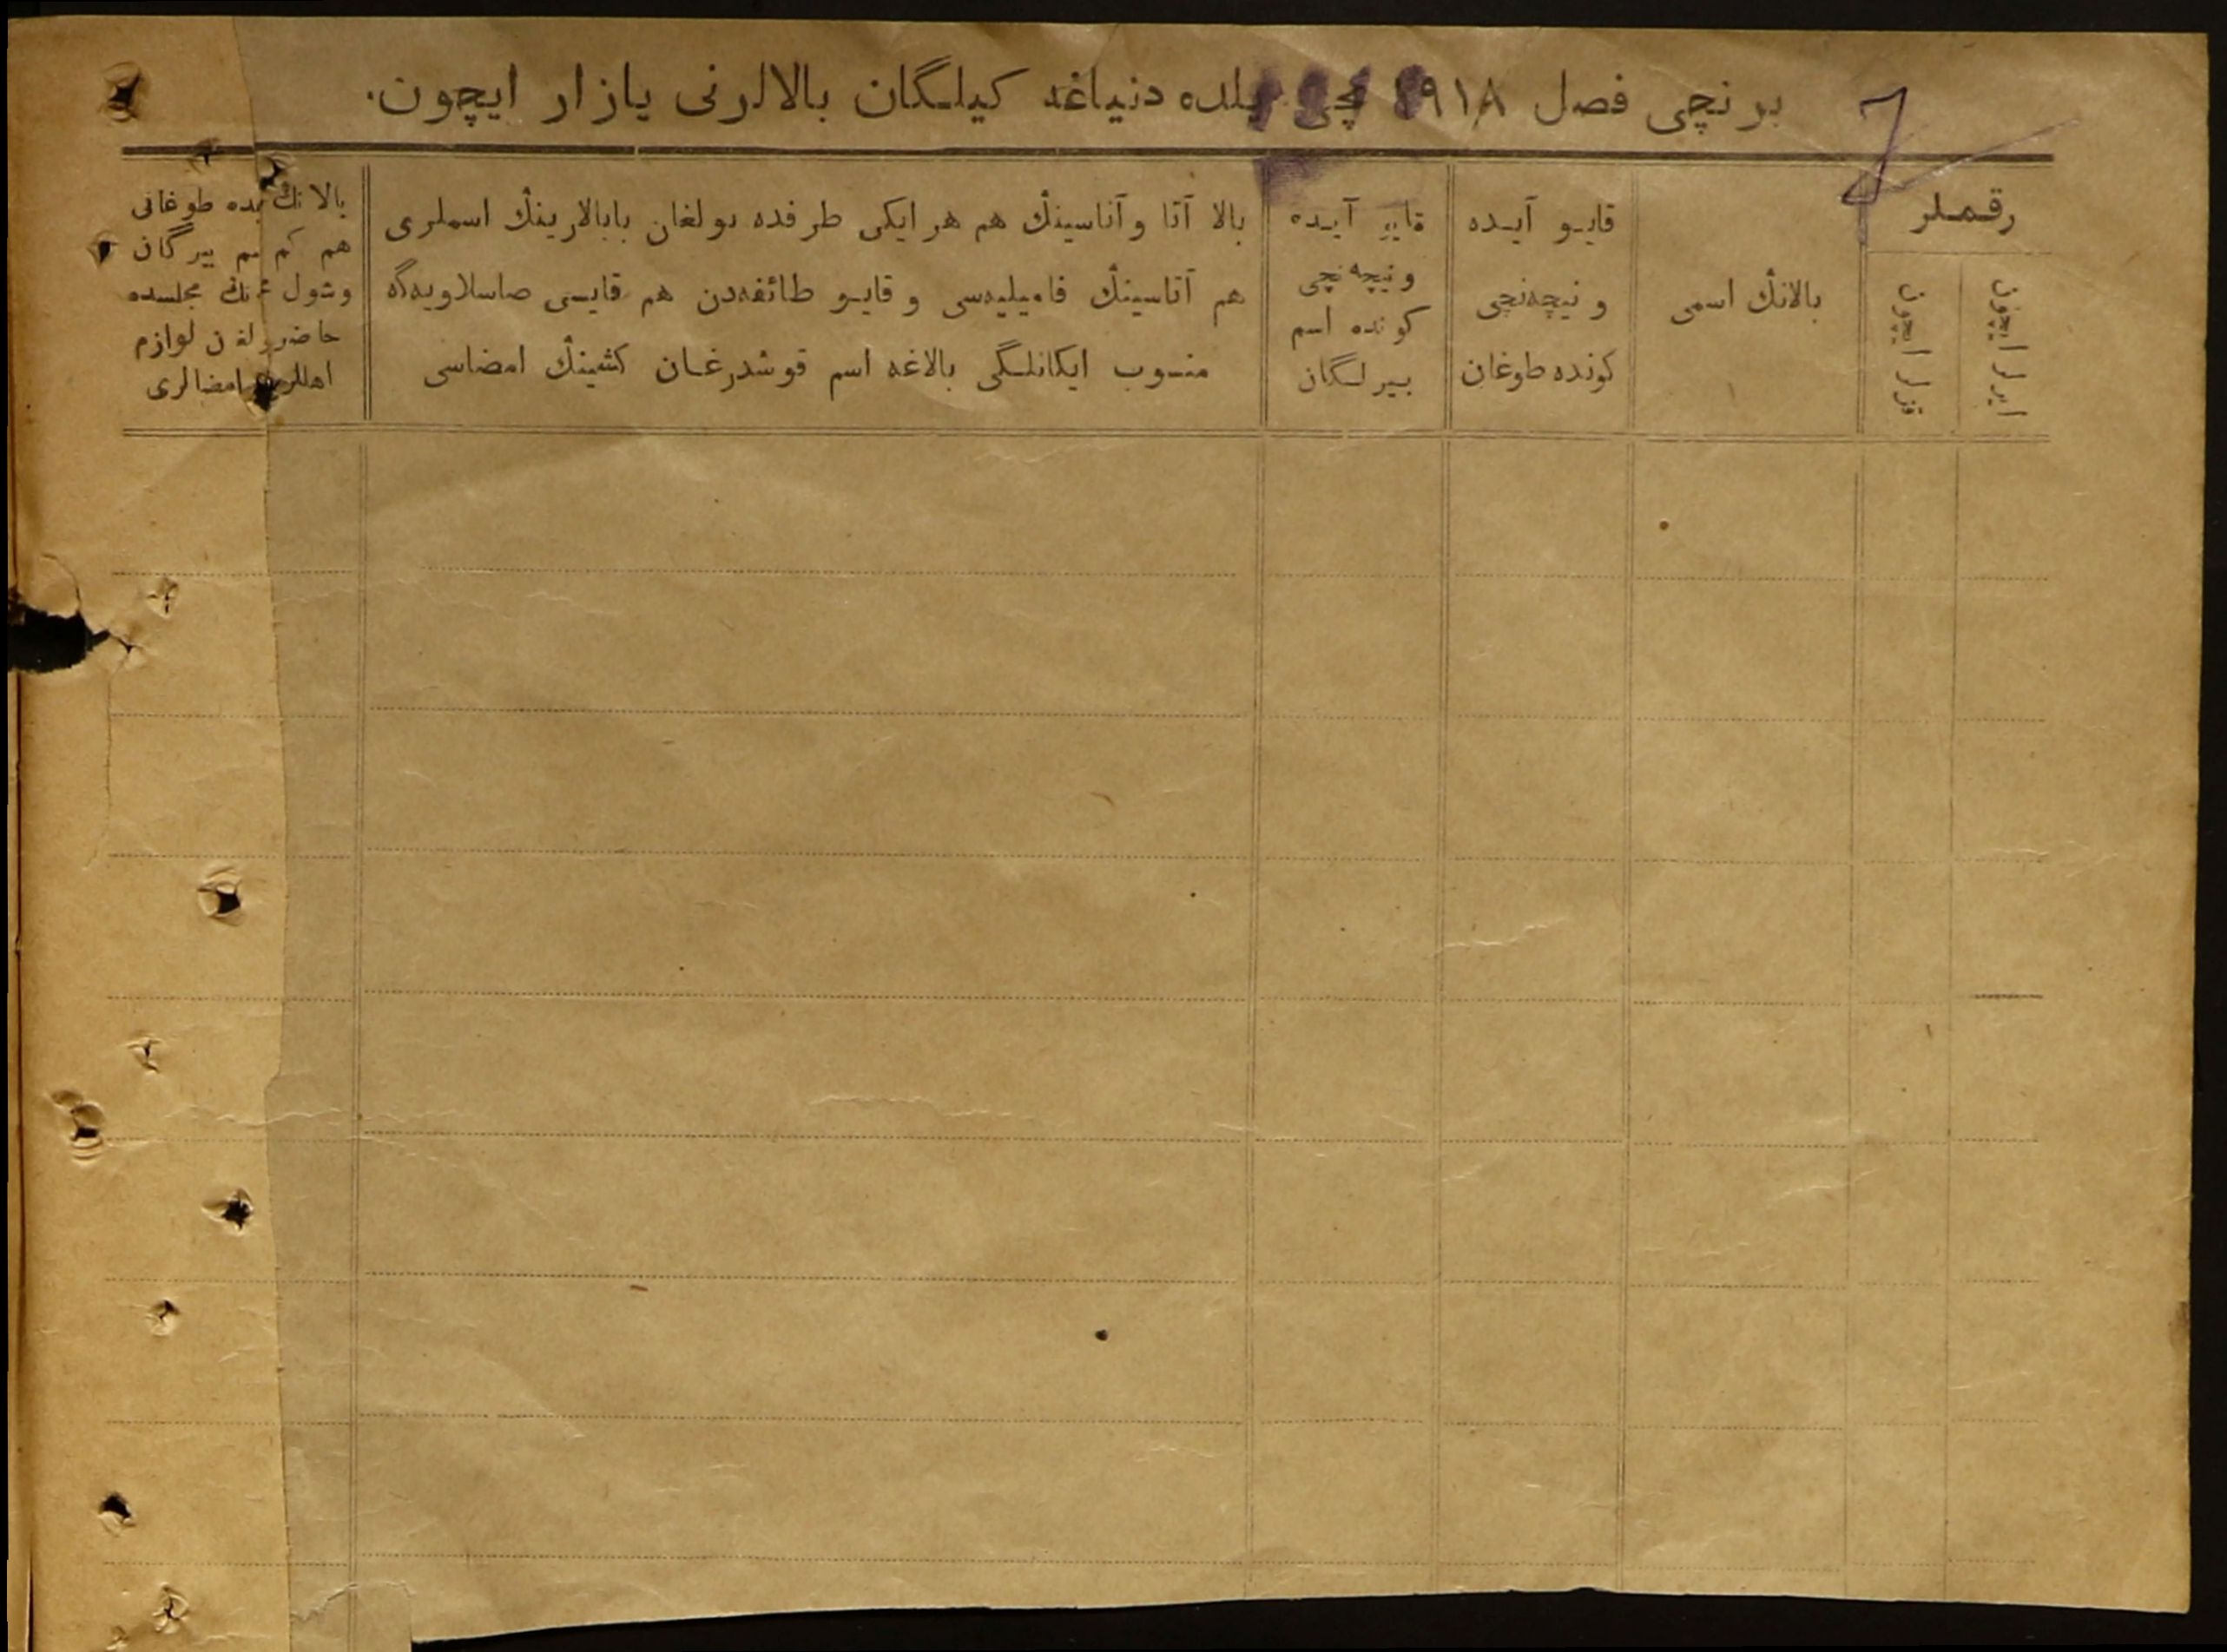 برنچی فصل ١٩١٨ نچی یلده دنیاغه کیلگان بالالرنی یازار ایچون.
رقملر
ایرلر ایچون
قزلر ایچون
بالانڭ اسمی
قایو آیده
و نیچه‌نچی
کونده طوغان
قایو آیده
و نیچه نچی
کونده اسم
بیرلگان
بالا آتا و آناسینڭ هم هر ایکی طرفده بولغان بابالارینڭ اسملری
هم آتاسینڭ فامیلیه‌سی و قایو طائفه‌دن هم قایسی صاسلاویه‌گه
منسوب ایکانلگی بالاغه اسم قوشدرغان کشینڭ امضاسی
بالانڭ طوغانی
هم کم بیرگان
وشول مجلسده
حاضر لوازم
امضالری